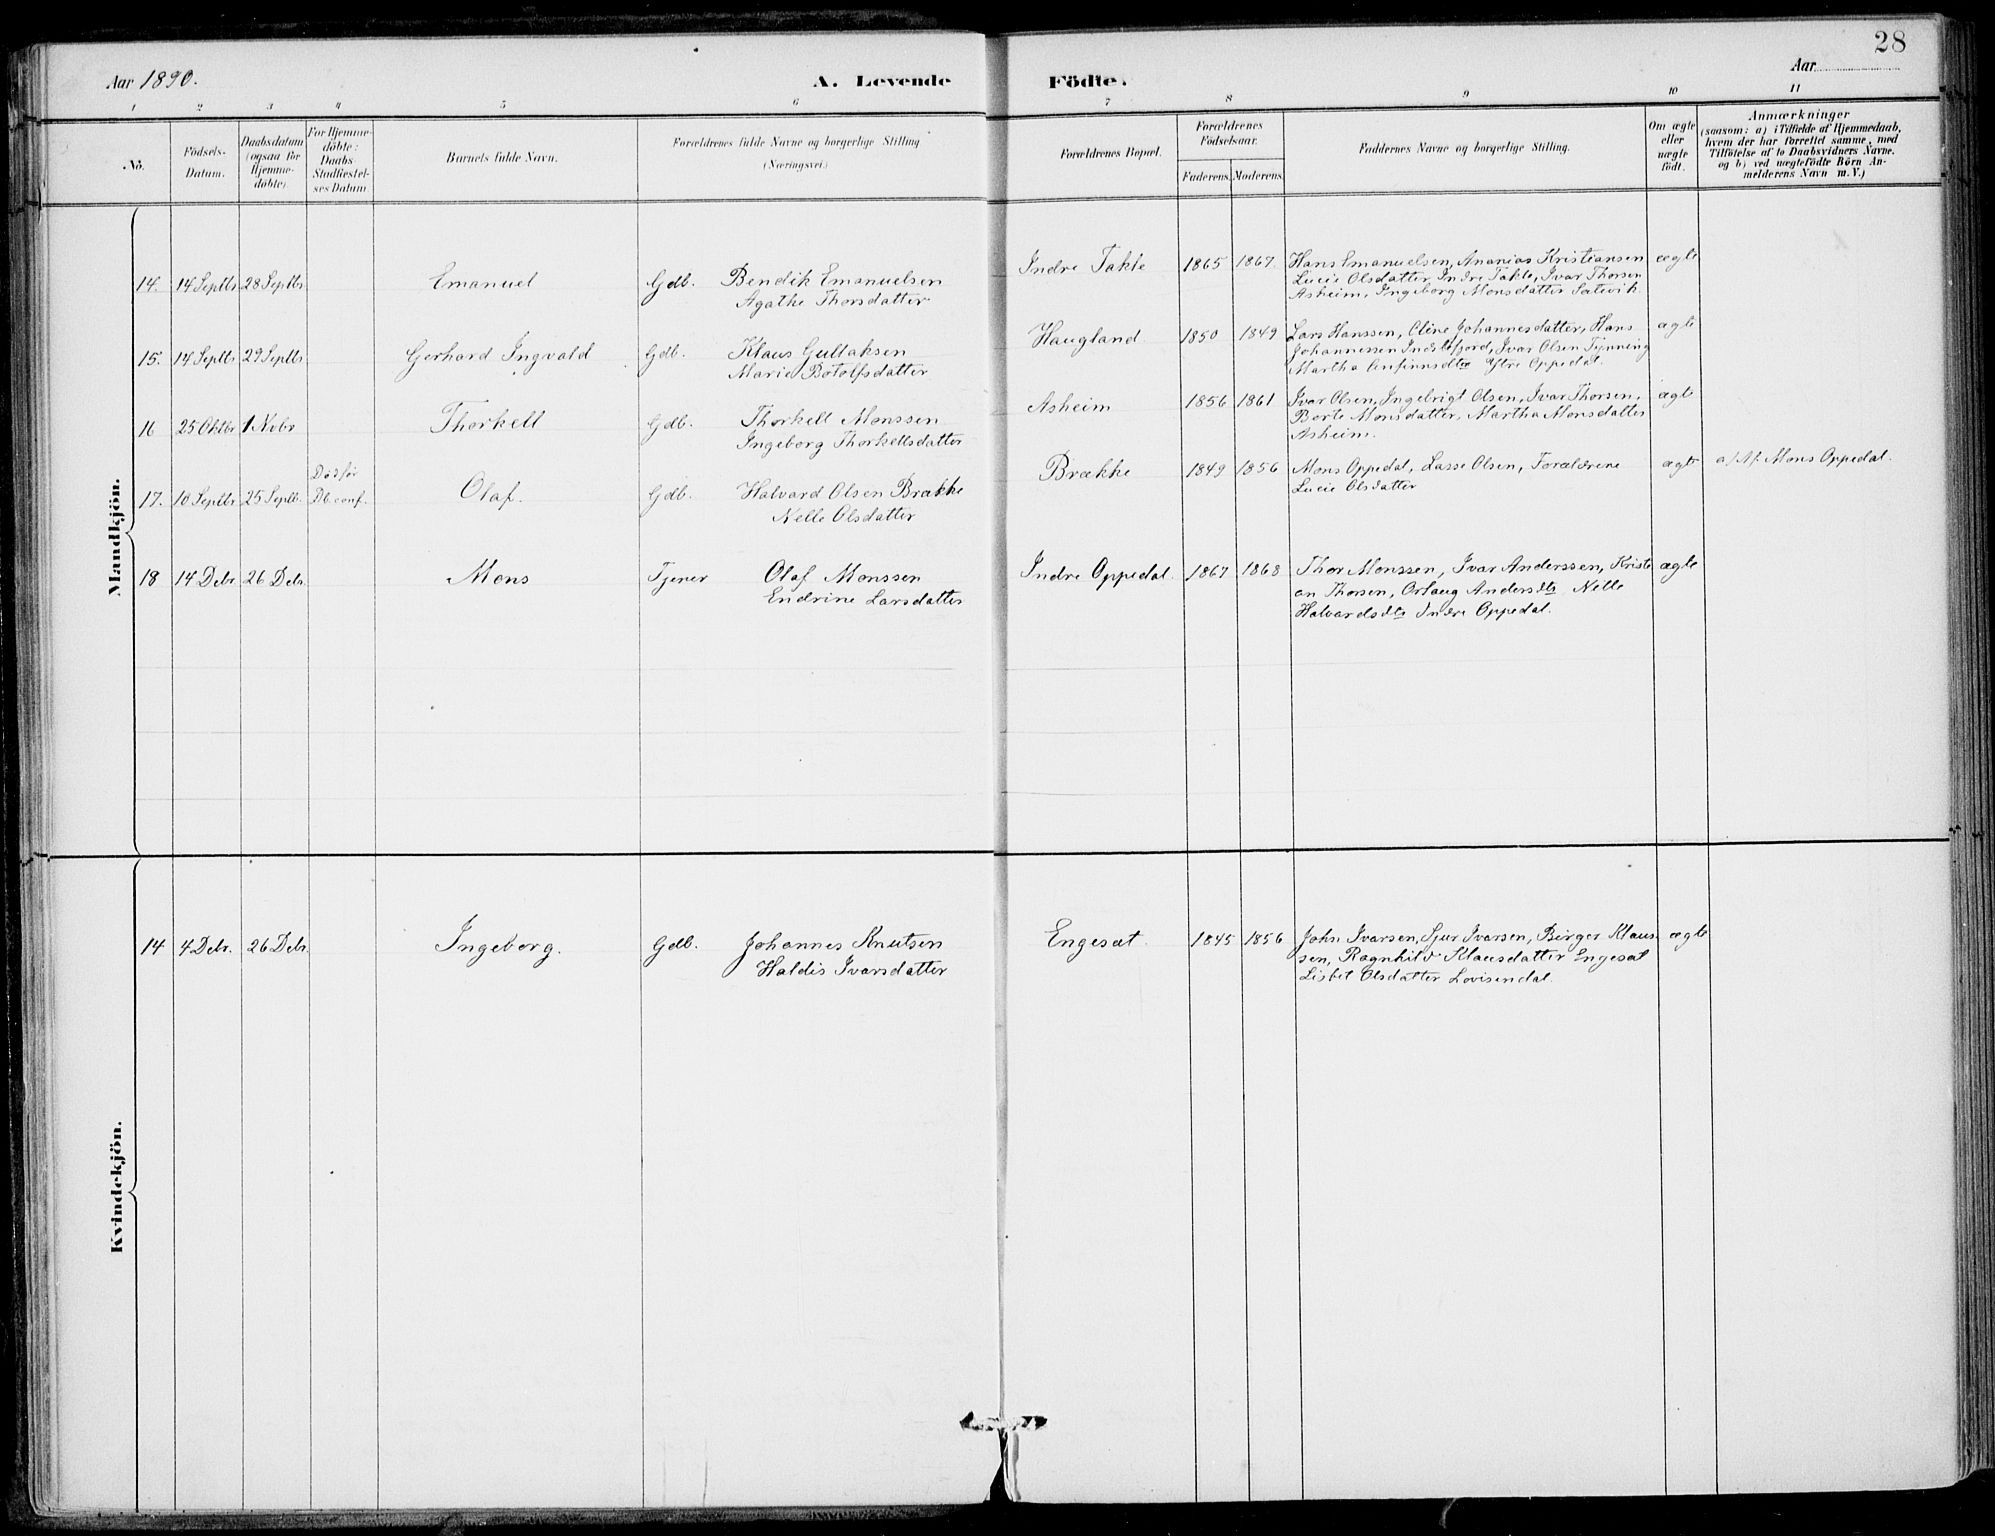 28
Aar 1890. A. Levende Födte. Aar
1 2 3 4 5 6 7 8 9 10 11
No.
Födsels-
Datum.
Daabsdatum
(ogsaa for
Hjemme-
döbte).
For Hjemme-
döbte:
Daabs-
Stadfæstel-
ses Datum.
Barnets fulde Navn.
Forældrenes fulde Navne og borgerlige Stilling
(Næringsvei.)
Forældrenes Bopæl.
Forældrenes
Födselsaar.
Faderens. Moderens.
Faddernes Navne og borgerlige Stilling.
Om ægte
eller
uægte
födt.
Anmærkninger
(saasom: a) i Tilfælde af Hjemmedaab,
hvem der har forrettet samme, med
Tilföielse af to Daabsvidners Navne.
og b) ved uægtefödte Börn An-
melderens Navn m. V.)
Mandkjön.
14. 14 Septbr 28 Septbr Emanuel Gdb. Bendik Emanuelsen
Agathe Thorsdatter
Indre Takle 1865 1867 Hans Emanuelsen, Ananias Kristiansen ægte
Lucie Olsdatter, Indre Takle, Ivar Thorsen
Asheim, Ingeborg Monsdatter Satevik.
15. 14 Septbr 29 Septbr Gerhard Ingvald Gdb. Klaus Gullaksen
Marie Botolfsdatter
Haugland 1850 1849 Lars Hanssen, Oline Johannesdatter, Hans ægte
Johannessen Indrefjord, Ivar Olsen Tynning
Martha Anfinnsdtr Ytre Oppedal.
16 25 Oktbr 1 Nvbr Thorkell Gdb. Thorkell Monssen
Ingeborg Thorkellsdatter
Asheim 1856 1861 Ivar Olsen, Ingebrigt Olsen, Ivar Thorsen, ægte
Borte Monsdatter, Martha Monsdatter
Asheim.
17. 10 Septbr 25 Septb. Död för
Db. conf. Olaf. Gdb. Halvard Olsen Brække
Nelle Olsdatter
Brække 1849 1856 Mons Oppedal, Lasse Olsen, Forældrene ægte a/ Af Mons Oppedal.
Lucie Olsdatter
18 14 Debr. 26 Debr. Mons Tjener Olaf Monssen
Endrine Larsdatter
Indre Oppedal. 1867 1868 Thor Monssen, Ivar Anderssen, Kristi ægte
an Thorsen, Orlaug Andersdtr Nelle
Halvardsdtr Indre Oppedal.
Kvindekjön.
14 4 Debr. 26 Debr. Ingeborg. Gdb. Johannes Knutsen
Haldis Ivarsdatter
Engesæt. 1845 1856 John Ivarsen, Sjur Ivarsen, Birger Klaus- ægte
sen, Ragnhild Klausdatter Engesæt
Lisbet Olsdatter Lovisendal.